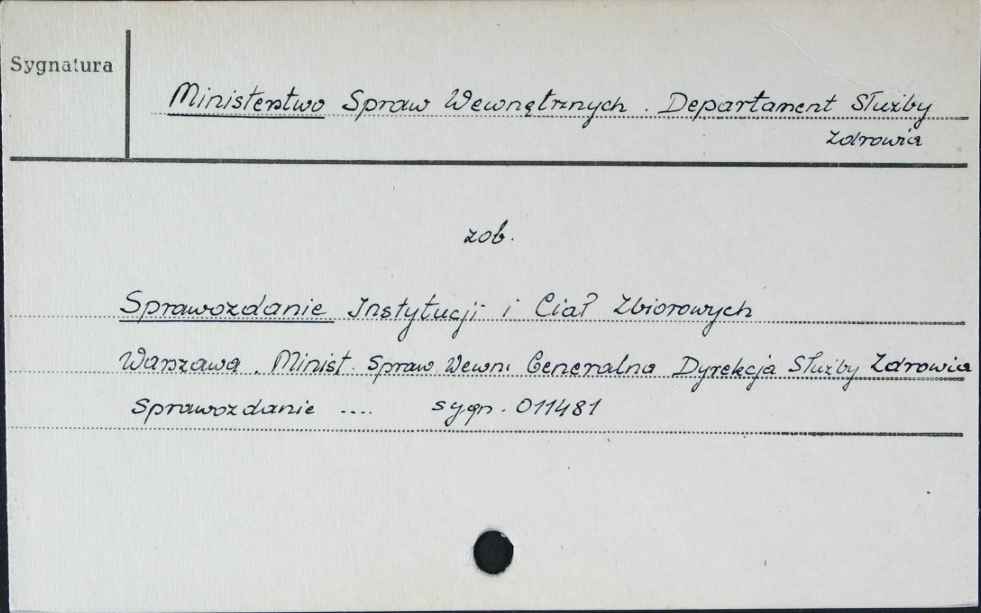 Sygnatura
Ministerstwo Spraw Wewnętrznych. Departament Służby
Zdrowia
zob.
Sprawozdanie Instytucji i Ciał Zbiorowych
Warszawa. Minist. Spraw Wewn. Generalna Dyrekcja Służby Zdrowia
Sprawozdanie .... sygn. 011481